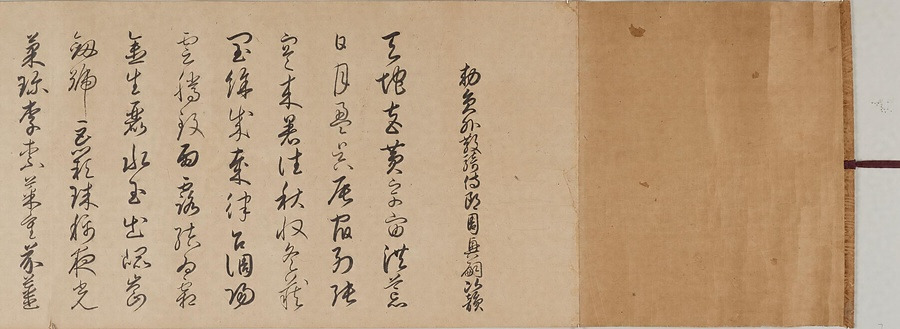 勅員外散騎侍郎周興嗣次韻
天地玄黃宇宙洪荒
日月盈昃辰宿列張
寒來暑往秋收冬藏
閏餘成歲律呂調陽
雲騰致雨露結為霜
金生麗水玉出崑崗
劒號巨闕珠稱夜光
菓珍李柰菜重芥薑